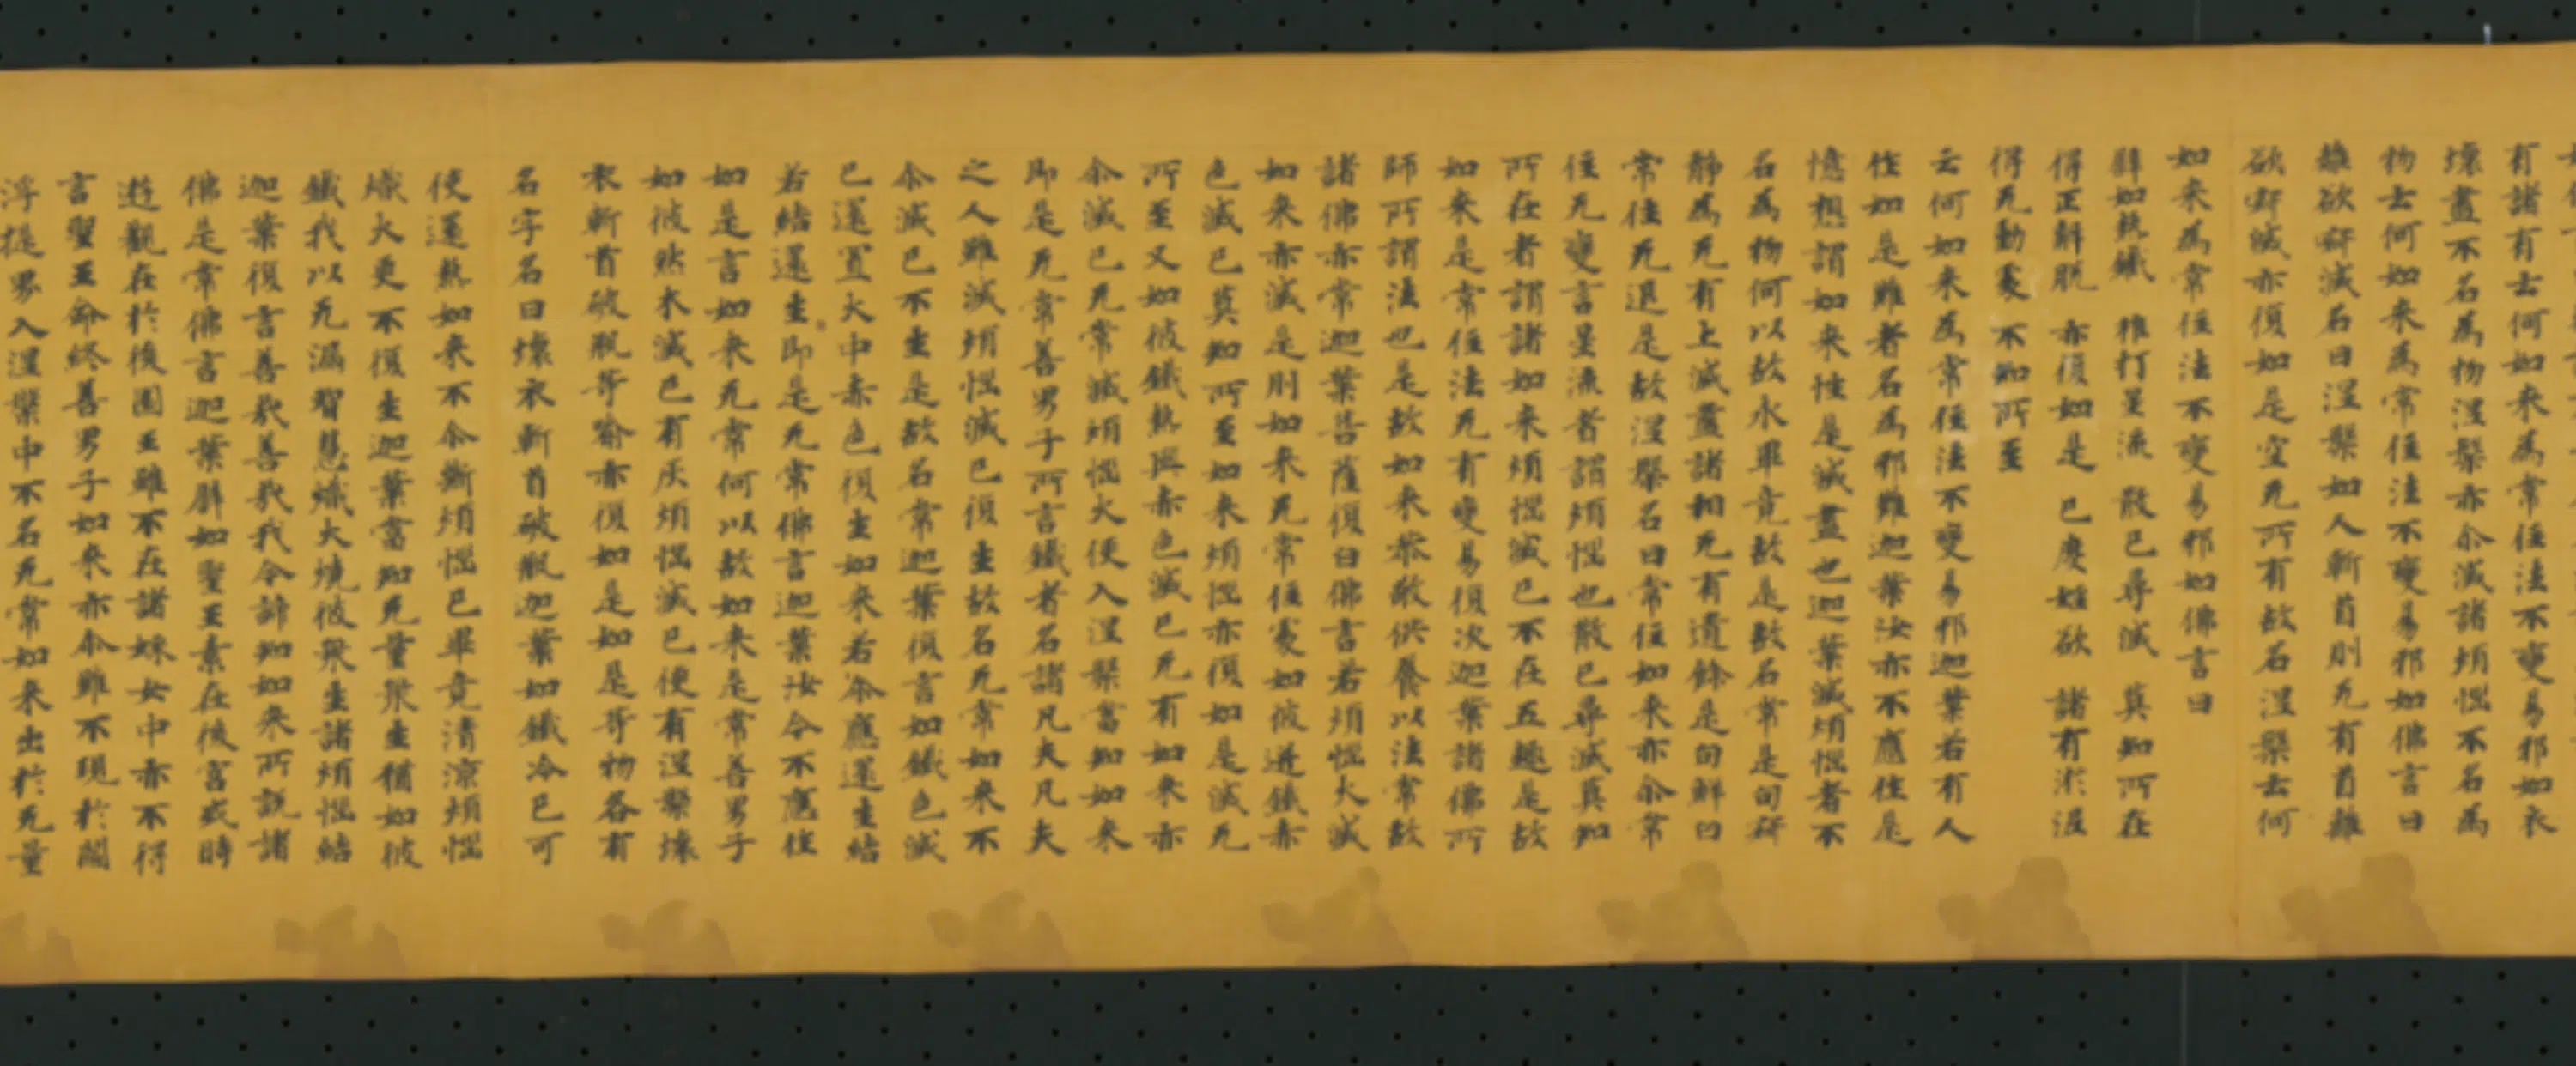 有諸有云何如来為常住法不變易邪如衣
壊盡不名為物涅槃亦尒滅諸煩惱不名為
物云何如来為常住法不變易邪如佛言曰
離欲寂滅名曰涅槃如人斬首則无有首離
欲寂滅亦復如是空无所有故名涅槃云何
如来為常住法不變易邪如佛言曰
辟如熱鐵 椎打星流 散已尋滅 莫知所在
得正解脱 亦復如是 已度婬欲 諸有淤泥
得无動處 不知所至
云何如来為常住法不變易邪迦葉若有人
作如是難者名為邪難迦葉汝亦不應作是
憶想謂如来性是滅盡也迦葉滅煩惱者不
名為物何以故永畢竟故是故名常是句寂
靜為无有上滅盡諸相无有遺餘是句鮮白
常住无退是故涅槃名曰常住如来亦尒常
住无變言星流者謂煩惱也散已尋滅莫知
所在者謂諸如来煩惱滅已不在五趣是故
如来是常住法无有變易復次迦葉諸佛所
師所謂法也是故如来恭敬供養以法常故
諸佛亦常迦葉菩薩復白佛言若煩惱火滅
如来亦滅是則如来无常住處如彼迸鐵赤
色滅已莫知所至如来煩惱亦復如是滅无
所至又如彼鐵熱與赤色滅已无有如来亦
尒滅已无常滅煩惱火便入涅槃當知如来
即是无常善男子所言鐵者名諸凡夫凡夫
之人雖滅煩惱滅已復生故名无常如来不
尒滅已不生是故名常迦葉復言如鐵色滅
已還置火中赤色復生如来若尒應還生結
若結還生即是无常佛言迦葉汝今不應作
如是言如来无常何以故如来是常善男子
如彼然木滅已有灰煩惱滅已便有涅槃壊
衣斬首破瓶等喻亦復如是如是等物各有
名字名曰壊衣斬首破瓶迦葉如鐵冷已可
使還熱如来不尒斷煩惱已畢竟清涼煩惱
熾火更不復生迦葉當知无量衆生猶如彼
鐵我以无漏智慧熾火燒彼衆生諸煩惱結
迦葉復言善哉善哉我今諦知如来所說諸
佛是常佛言迦葉辟如聖王素在後宮或時
遊觀在於後園王雖不在諸婇女中亦不得
言聖王命終善男子如来亦尒雖不現於閻
浮提界入涅槃中不名无常如来出於无量